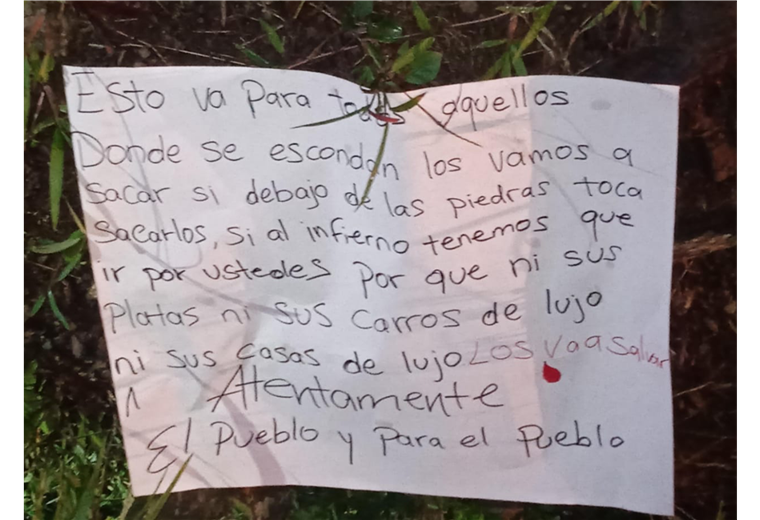 Esto va Para todos aquellos
Donde se escondan los vamos a
sacar si debajo de las piedras toca
sacarlos, si al infierno tenemos que
ir por ustedes por que ni sus
Platas ni sus carros de lujo
ni sus casas de lujo LOS va a salvar
Atentamente
El Pueblo y Para el Pueblo